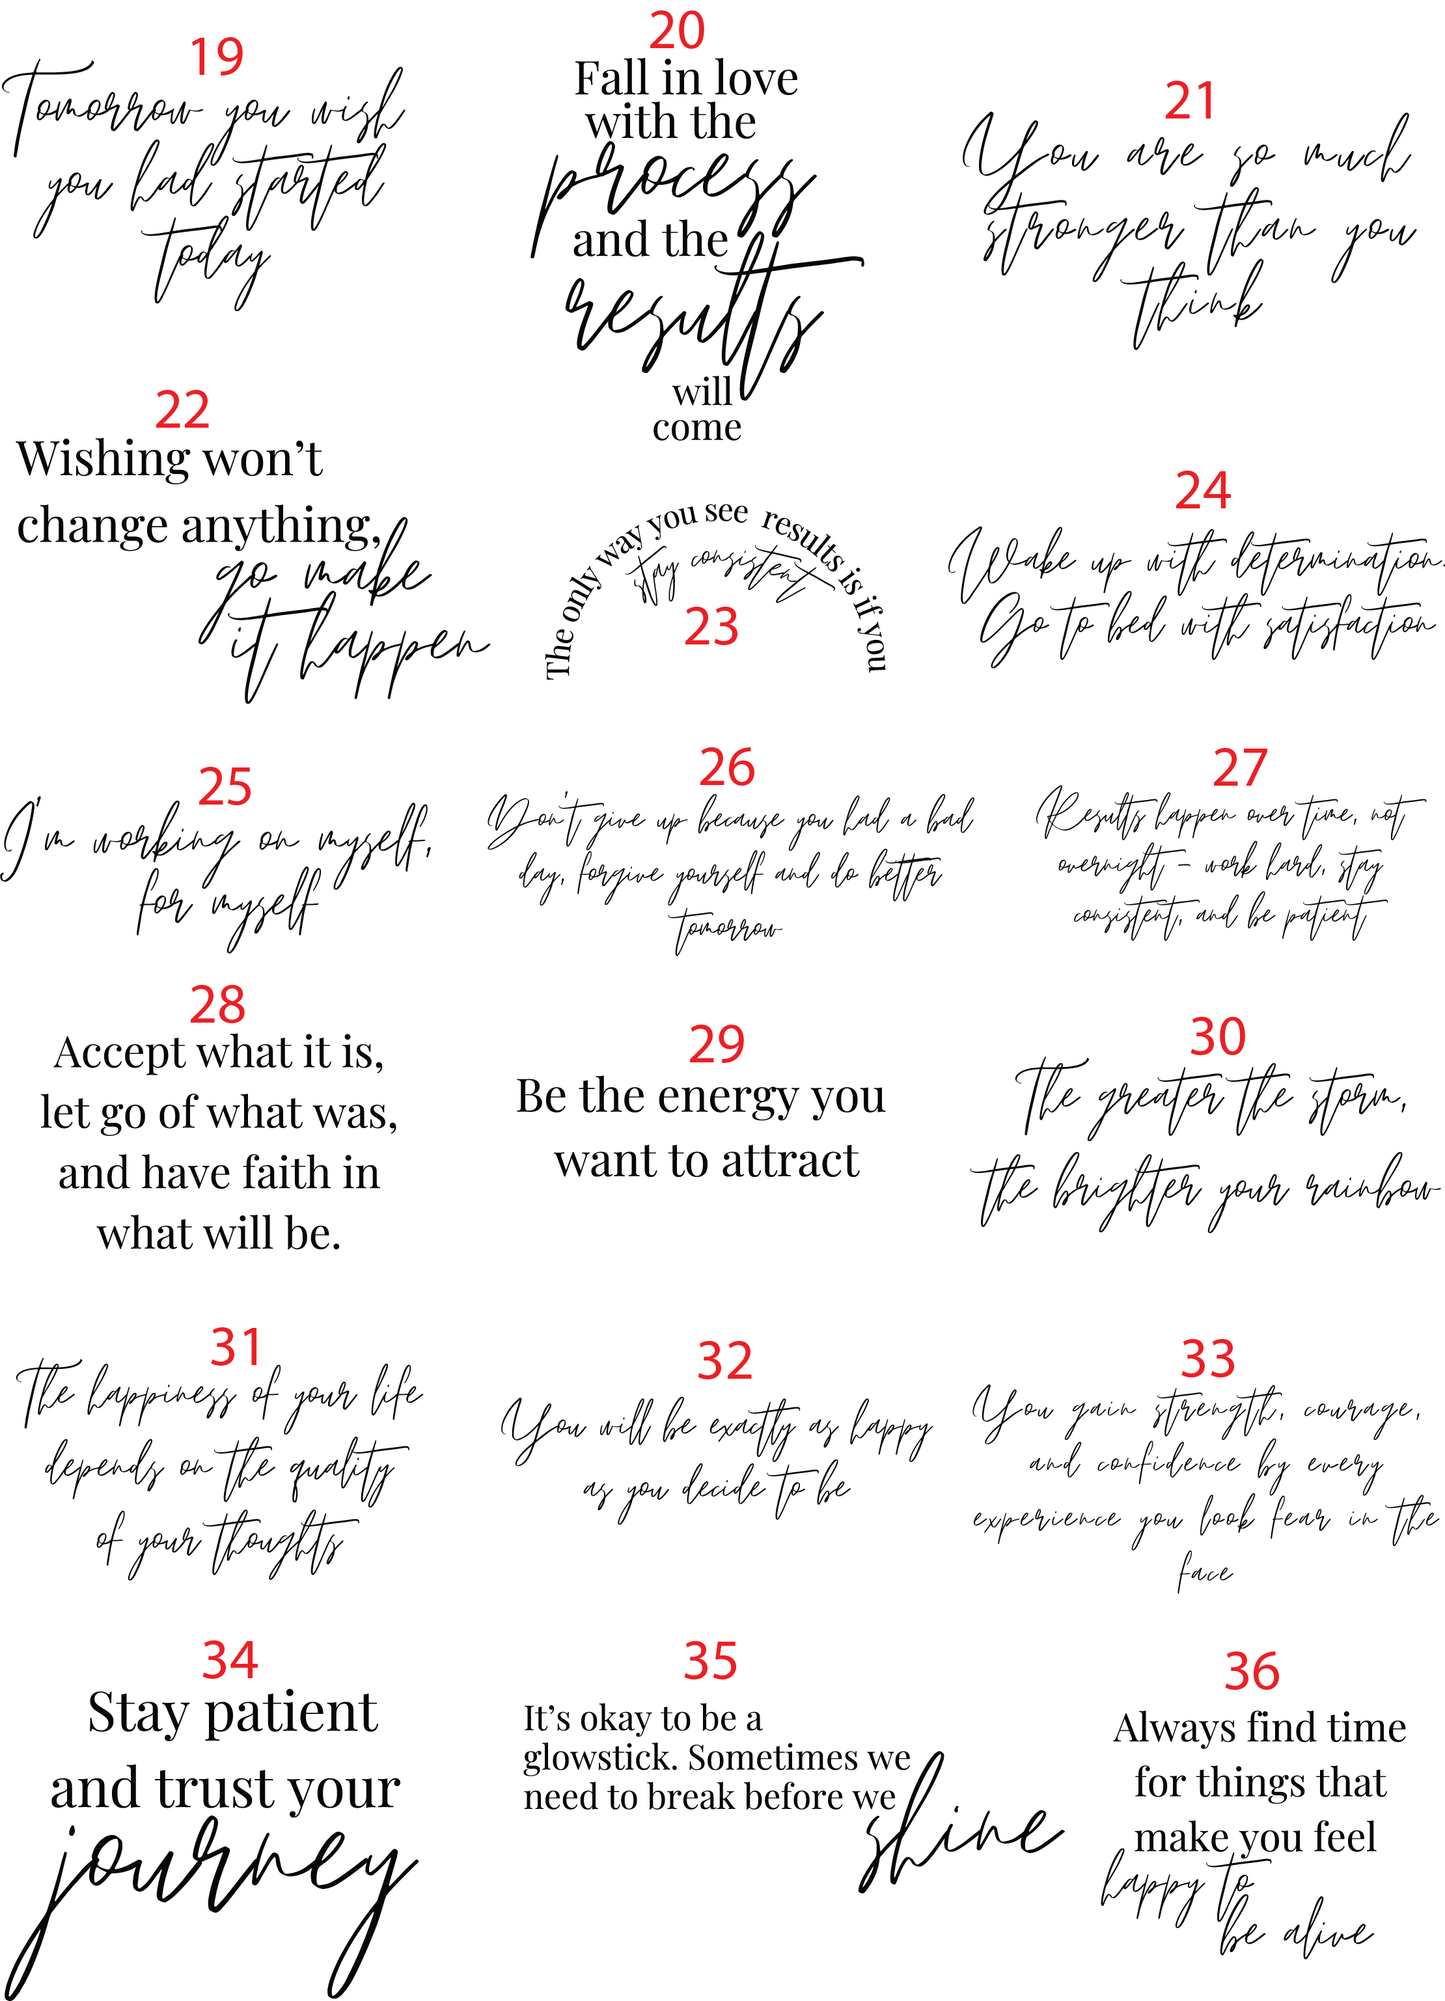 19
Tomorrow you wish
you had started
today
20
Fall in love
with the
process
and the
results
will
come
21
You are so much
stronger than you
think
22
Wishing won’t
change anything,
go make
it happen
The only way you see results is if you
stay consistent
23
24
Wake up with determination.
Go to bed with satisfaction
25
I'm working on myself,
for myself
26
Don't give up because you had a bad
day, forgive yourself and do better
tomorrow
27
Results happen over time, not
overnight - work hard, stay
consistent, and be patient
28
Accept what it is,
let go of what was,
and have faith in
what will be.
29
Be the energy you
want to attract
30
The greater the storm,
the brighter your rainbow
31
The happiness of your life
depends on the quality
of your thoughts
32
You will be exactly as happy
as you decide to be
33
You gain strength, courage,
and confidence by every
experience you look fear in the
face
34
Stay patient
and trust your
journey
35
It’s okay to be a
glowstick. Sometimes we
need to break before we
shine
36
Always find time
for things that
make you feel
happy to
be alive